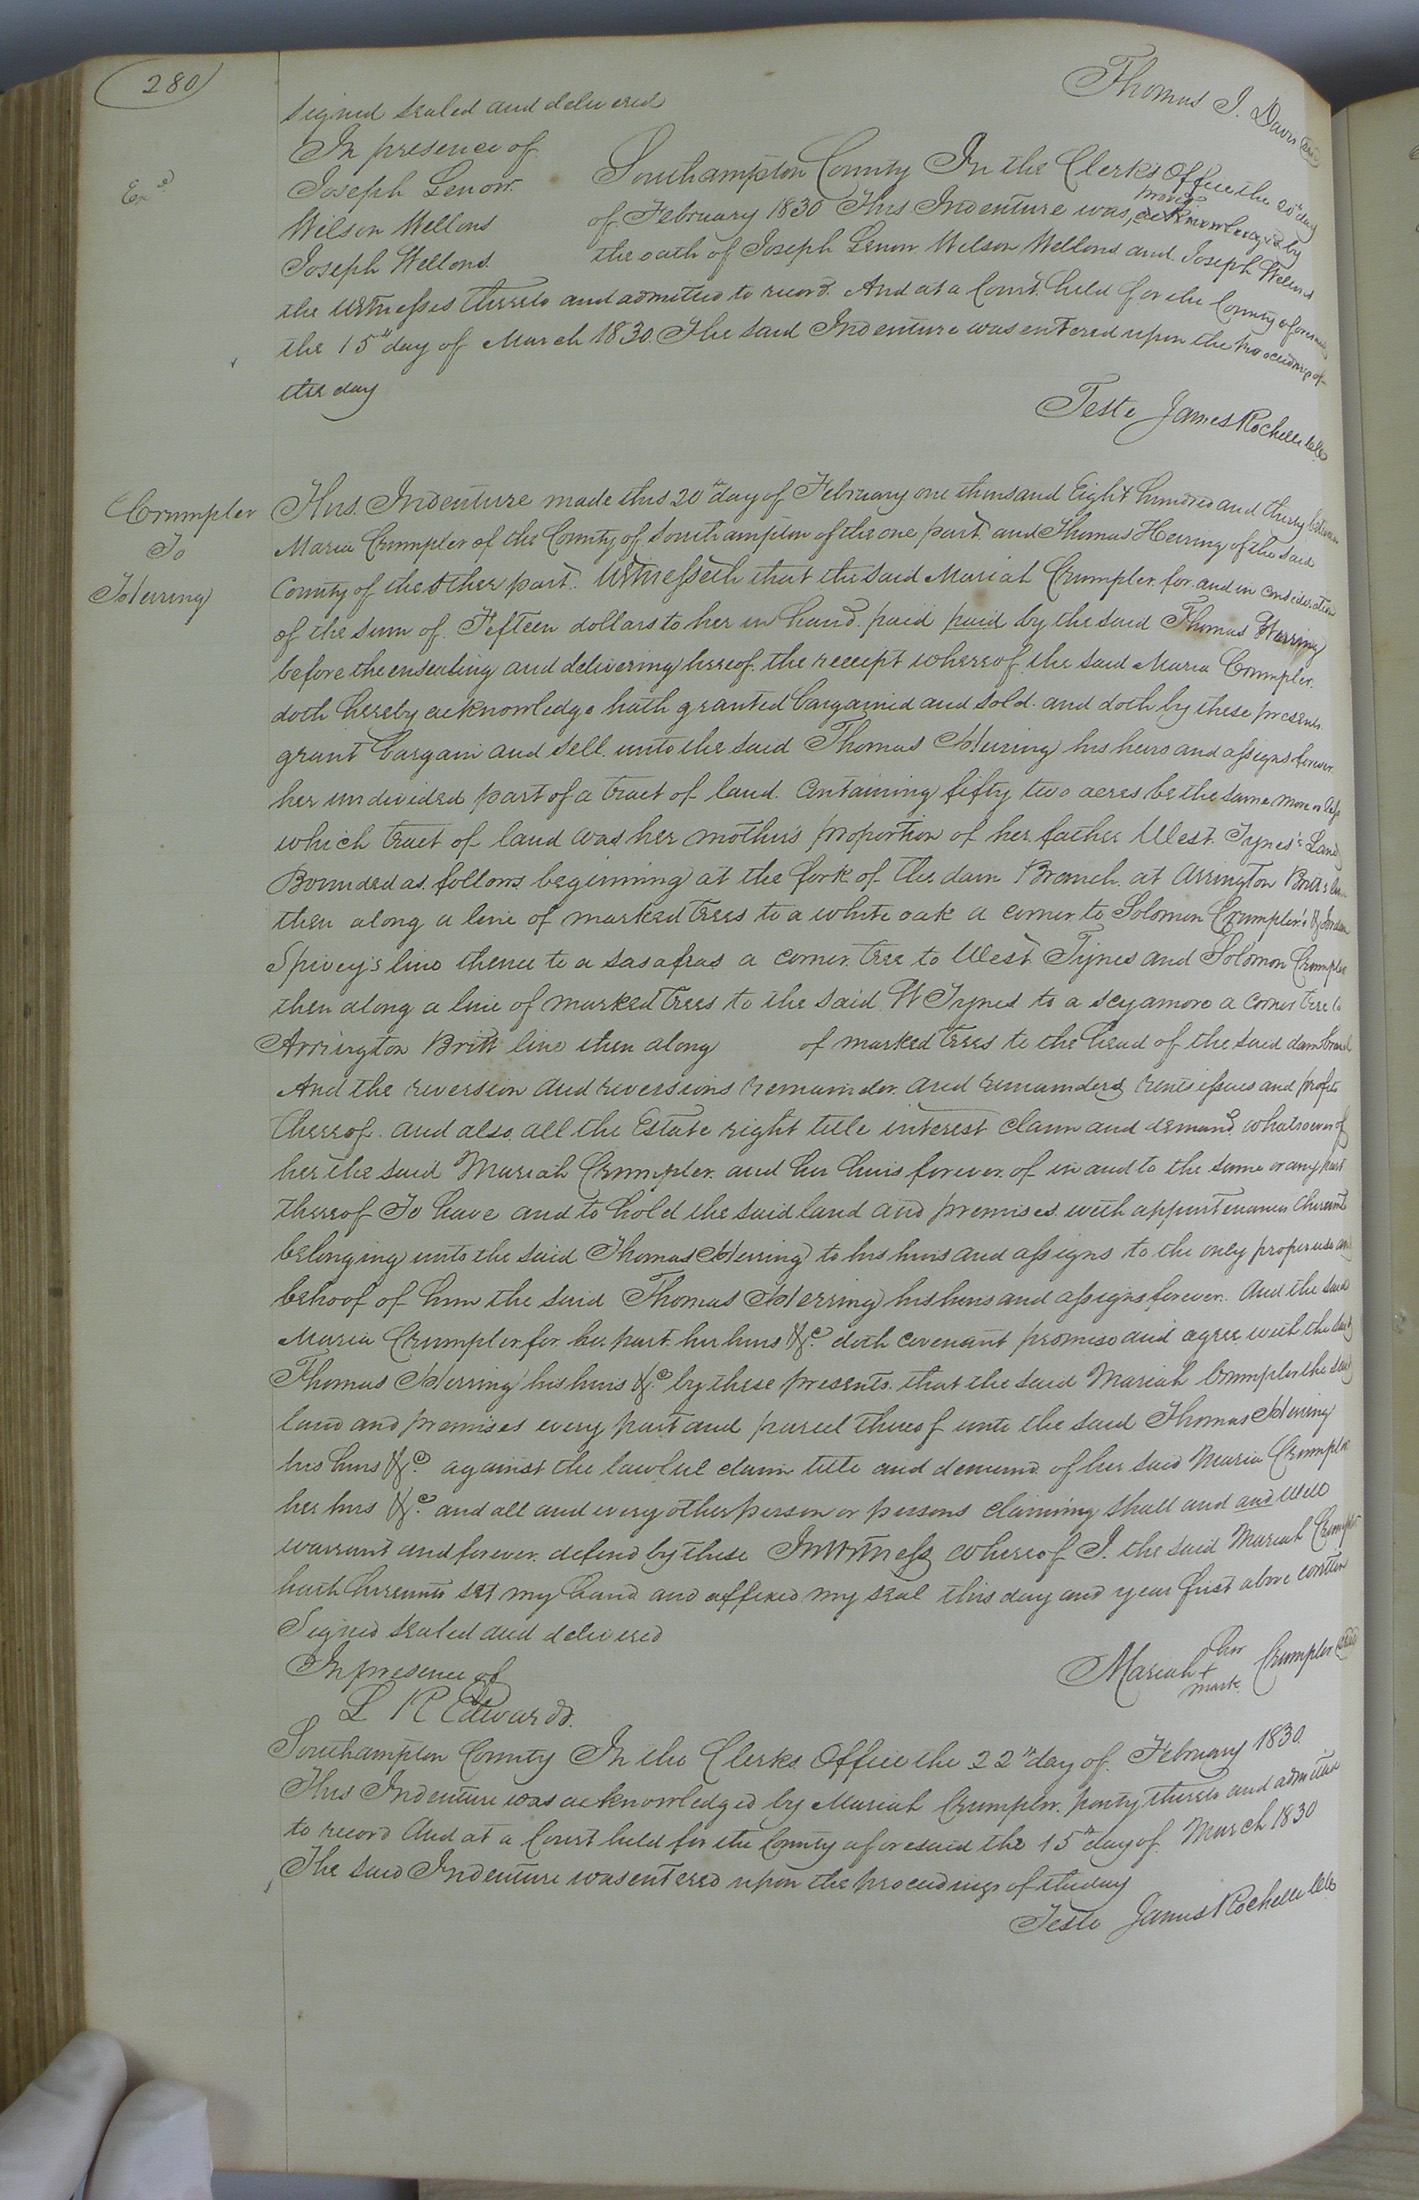 280
signed sealed and delivered
Thomas J. Davis (seal)
In presence of
Joseph Lenow
Wilson Wellons
Joseph Wellons
Exd
Southampton County In the Clerks Office the 20th day
of February 1830 This Indenture was, proved acknowledged by
the oath of Joseph Lenow Wilson Wellons and Joseph Wellons
the witnesses thereto and admitted to record. And at a Court held for the County aforesaid
the 15th day of March 1830. The said Indenture was entered upon the proceedings of
the day
Teste James Rochelle
Crumpler
To
Herring
This Indenture made this 20th day of February one thousand Eight hundred and thirty between
Maria Crumpler of the County of Southampton of the one part and Thomas Herring of the said
County of the other part. Witnesseth that the said Mariah Crumpler for and in consideration
of the sum of Fifteen dollars to her in hand paid paid by the said Thomas Herring
before the ensealing and delivering hereof the receipt whereof the said Maria Crumpler
doth hereby acknowledge hath granted bargained and sold. and doth by these presents
grant bargain and sell unto the said Thomas Herring his heirs and assigns forever
her undivided part of a tract of land. Containing fifty two acres be the same more or less
which tract of land was her mother's proportion of her father West Tynes's Land
Bounded as follows beginning at the fork of the dam Branch at Arrington Britt's line
then along a line of marked trees to a white oak a corner to Solomon Crumpler's & Jordan
Spivey's line thence to a sasafras a corner tree to West Tynes and Solomon Crumpler
then along a line of marked trees to the said W Tynes to a scyamore a corner tree to
Arrington Britt line then along of marked trees to the head of the said dam branch
And the reversion and reversions remainder and remainders rents issues and profits
thereof. and also all the Estate right title interest claim and demand whatsoever of
her the said Mariah Crumpler and her heirs forever of in and to the same or any part
thereof To have and to hold the said land and premises with appurtenances thereunto
belonging unto the said Thomas Herring to his heirs and assigns to the only proper use and
behoof of him the said Thomas Herring his heirs and assigns forever. And the said
Maria Crumpler for her part her heirs &c. doth covenant promise and agree with the said
Thomas Herring his heirs &c by these presents. that the said Mariah Crumpler the said
land and premises every part and parcel thereof unto the said Thomas Herring
his heirs &c. against the lawful claim title and demand of her said Maria Crumpler
her hrs &c. and all and every other person or persons claiming shall and and will
warrant and forever defend by these In witness whereof I. the said Mariah Crumpler
hath hereunto set my hand and affixed my seal this day and year first above written
Signed sealed and delivered
In presence of
L R Edwards.
her
Mariah + Crumpler (seal)
mark
Southampton County In the Clerks Office the 22nd day of February 1830.
This Indenture was acknowledged by Mariah Crumpler. party thereto and admitted
to record And at a Court held for the County aforesaid the 15th day of March 1830
The said Indenture was entered upon the proceedings of the day
Teste James Rochelle